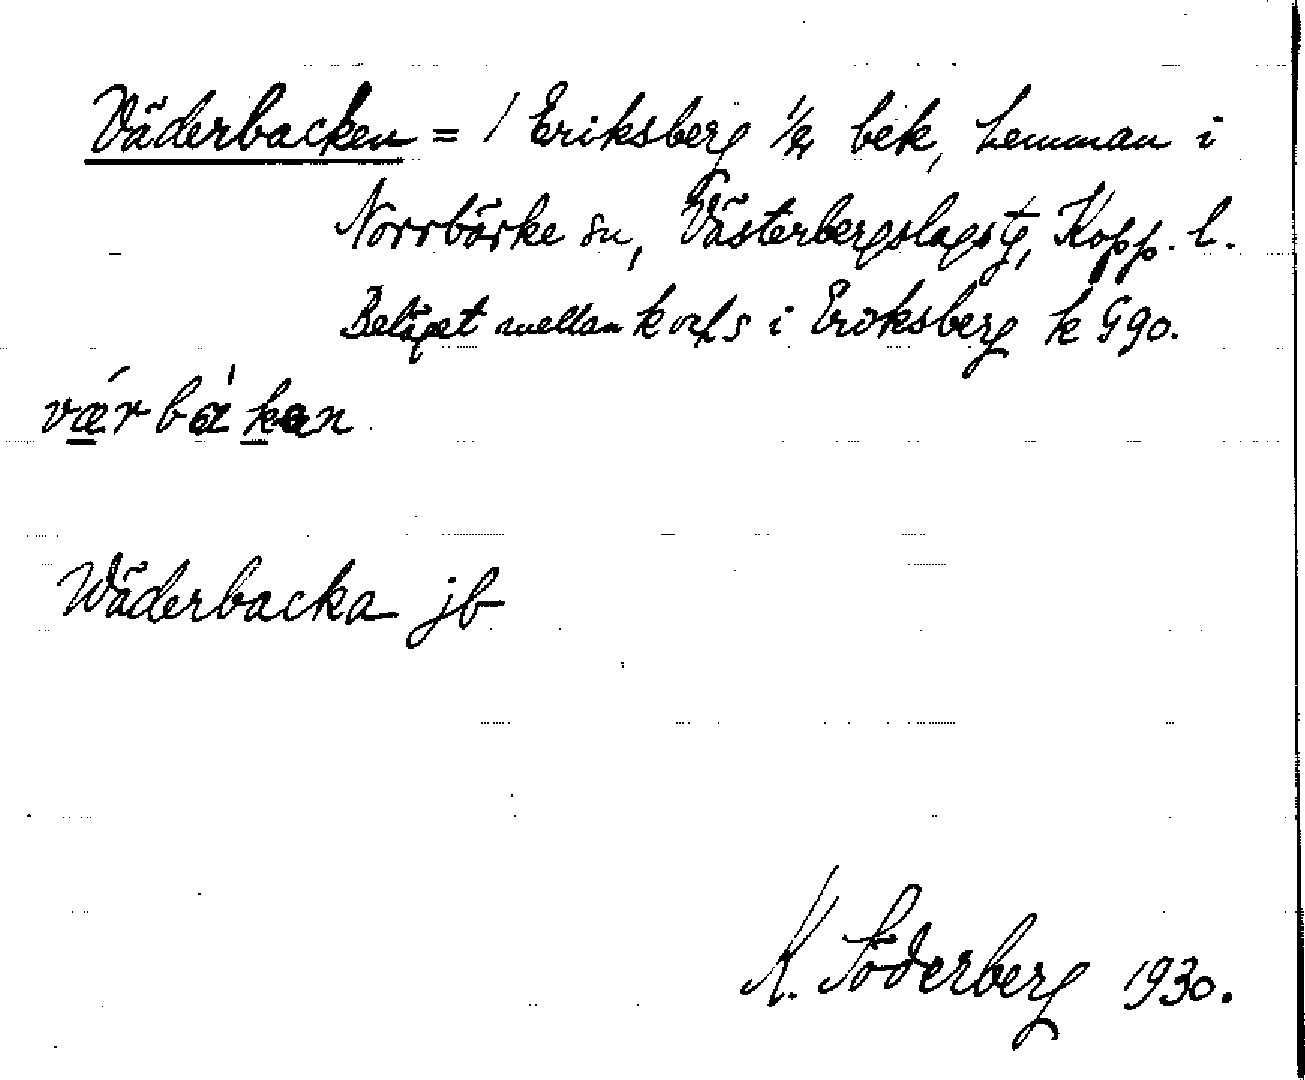 Väderbacken = / Eriksberg 1/4 bek, hemman i
Norrbärke sn, Västerbergslags tg, Kopp. l.
Beläget mellan k och s i Eriksberg k G90.
vǽrbàkan
Wäderbacka jb
K. Söderberg 1930.